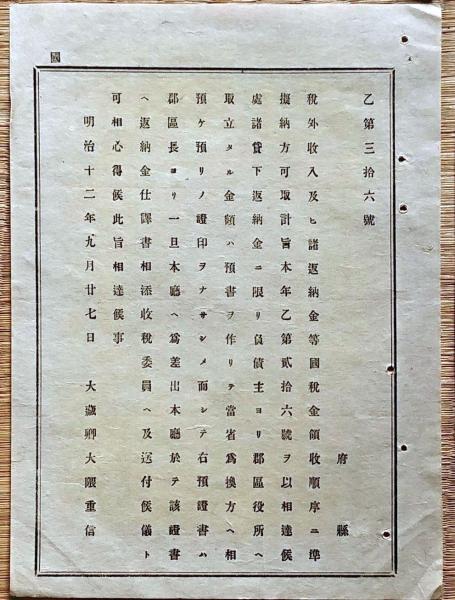 乙第三拾六號
府縣
税外收入及ヒ諸返納金等國税金領收順序ニ準
擬納方可取計旨本年乙第貳拾六號ヲ以相達候
處諸貸下返納金ニ限リ負債主ヨリ郡區役所ヘ
取立タル金額ハ預書ヲ作リテ當省爲換方ヘ相
預ケ預リノ證印ヲナサシメ而シテ右預證書ハ
郡區長ヨリ一旦本廳ヘ爲差出本廳於テ該證書
ヘ返納金仕譯書相添收税委員ヘ及送付候儀ト
可相心得候此旨相達候事
明治十二年九月廿七日 大藏卿大隈重信
國